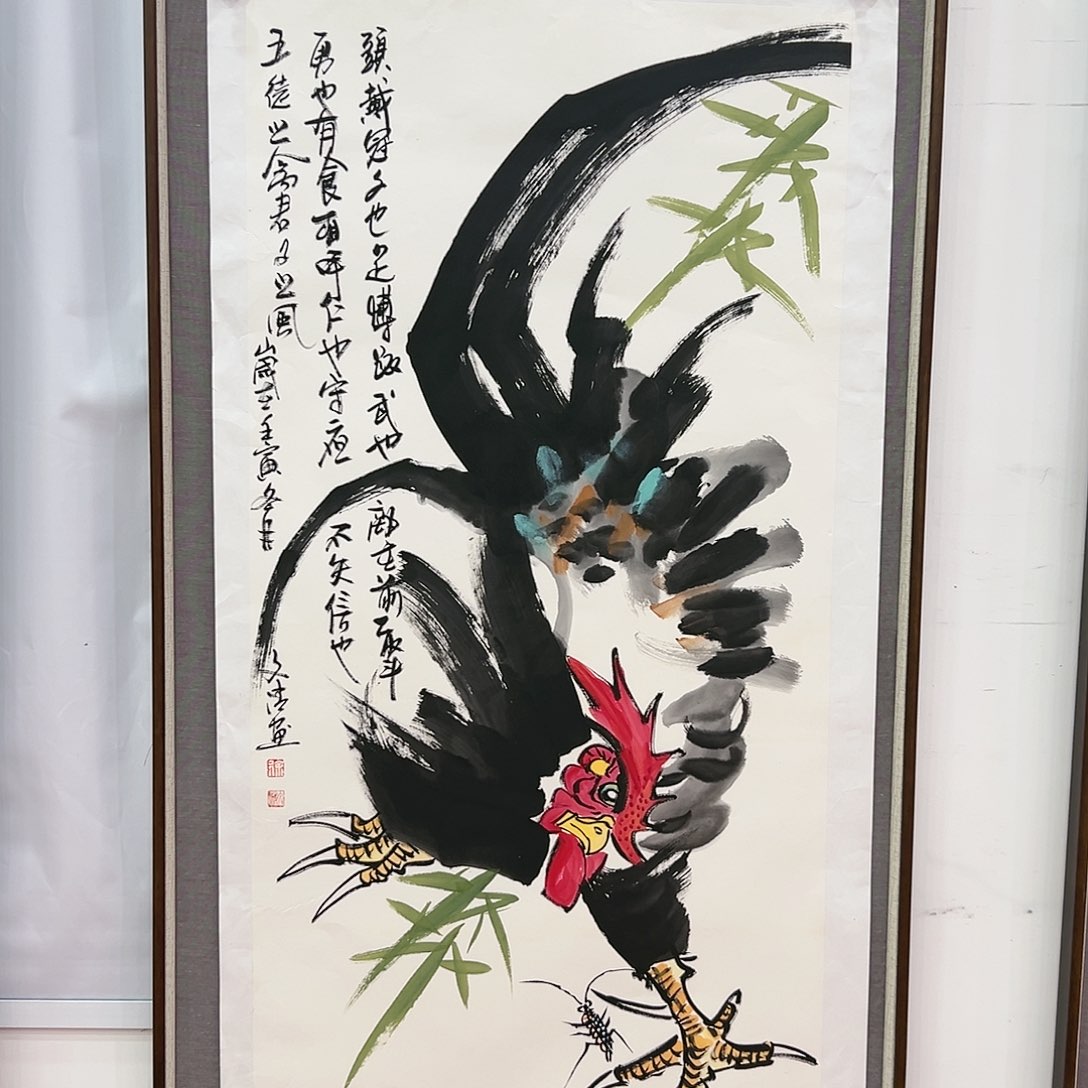 頭戴冠文也足搏距武也敵在前敢斗
勇也有食相呼仁也守夜不失信也
五德之禽君子之風歲在壬寅冬月
画